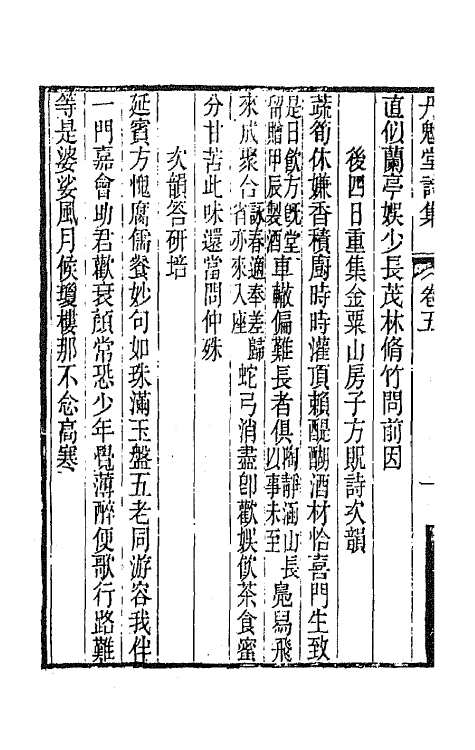 丹魁堂詩集 卷五 一
直似蘭亭娛少長茂林脩竹問前因
後四日重集金粟山房子方貺詩次韻
蔬筍休嫌香積廚時時灌頂賴醍醐酒材恰喜門生致
是日飲方旣堂留贈甲辰製酒車轍偏難長者俱陶靜涵山長以事未至鳧舄飛
來成聚合詠春適奉差歸省亦來入座蛇弓消盡卽歡娛飲茶食蜜
分甘苦此味還當問仲殊
次韻答研培
延賓方愧腐儒餐妙句如珠滿玉盤五老同游容我伴
一門嘉會助君歡衰顏常恐少年覺薄醉便歌行路難
等是婆娑風月候瓊樓那不念高寒